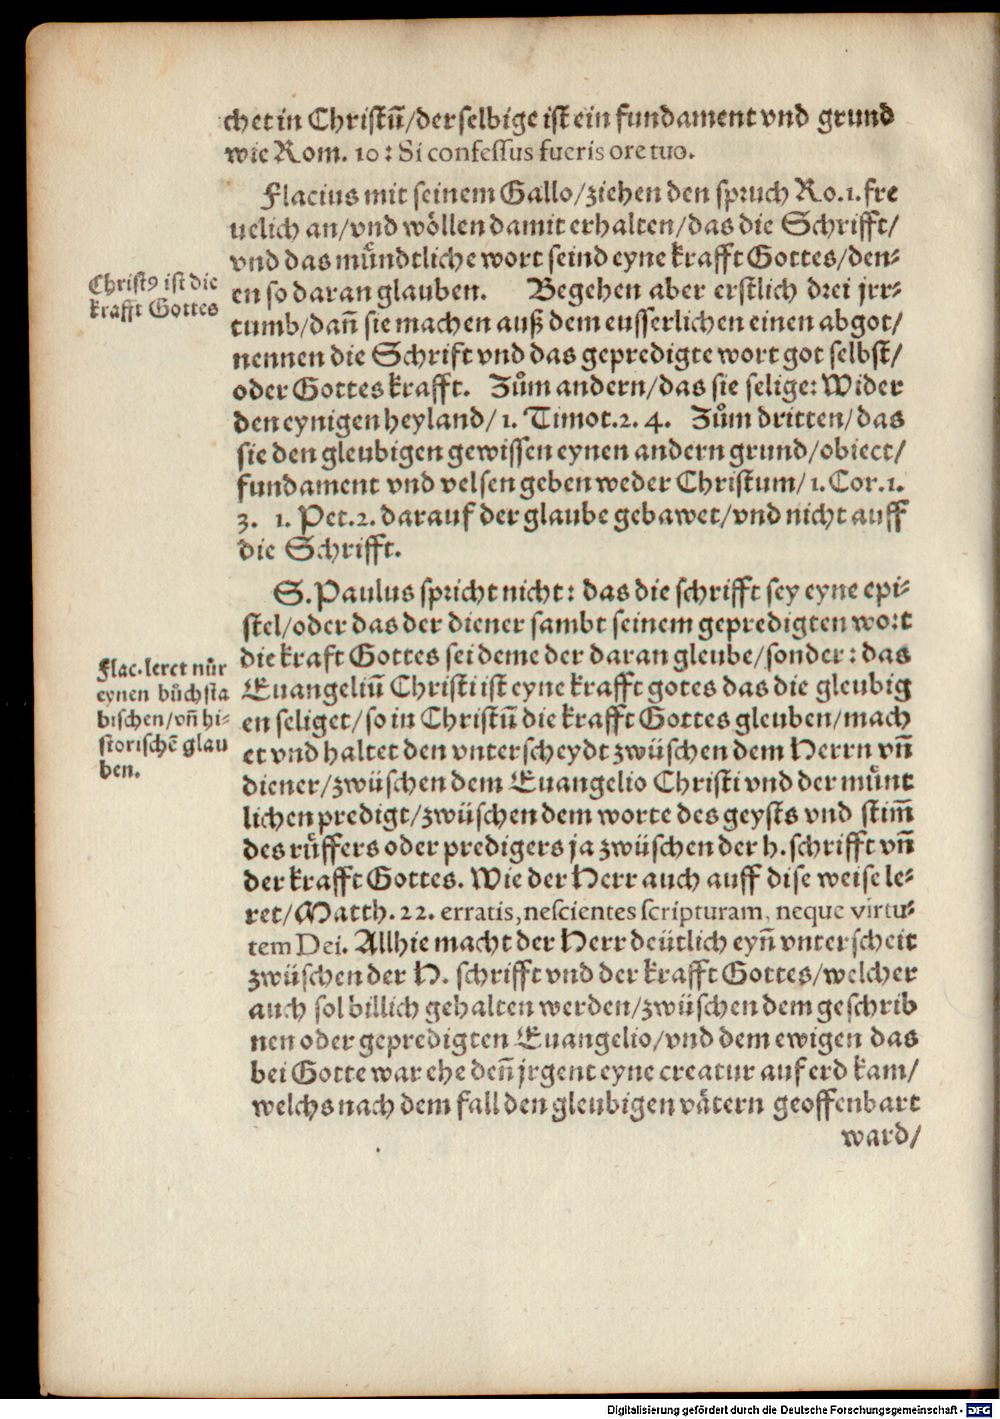 chet in Christū/der selbige ist ein fundament vnd grund
wie Rom. 10: Si confessus fueris ore tuo.
Flacius mit seinem Gallo/ziehen den spruch Ro.1.fre
uelich an/vnd wöllen damit erhalten/das die Schrifft/
vnd das mündtliche wort seind eyne krafft Gottes/den-
Christ9 ist die
krafft Gottes
en so daran glauben. Begehen aber erstlich drei jrr-
tumb/dañ sie machen auß dem eusserlichen einen abgot/
nennen die Schrift vnd das gepredigte wort got selbst/
oder Gottes krafft. Zům andern/das sie selige: Wider
den eynigen heyland/ 1. Timot.2. 4. Zům dritten/das
sie den gleubigen gewissen eynen andern grund/obiect/
fundament vnd velsen geben weder Christum/ 1. Cor.1.
3. 1. Pet.2. darauf der glaube gebawet/vnd nicht auff
die Schrifft.
S. Paulus spricht nicht: das die schrifft sey eyne epi-
stel/oder das der diener sambt seinem gepredigten wort
die kraft Gottes sei deme der daran gleube/sonder: das
Flac. leret nůr
eynen bůchsta
bischen/vñ hi-
storischē glau
ben.
Euangeliū Christi ist eyne krafft gotes das die gleubig
en seliget/so in Christū die krafft Gottes gleuben/mach
et vnd haltet den vnterscheydt zwüschen dem Herrn vñ
diener/zwüschen dem Euangelio Christi vnd der münt
lichen predigt/zwüschen dem worte des geysts vnd stim̄
des rüffers oder predigers ja zwüschen der h. schrifft vñ
der krafft Gottes. Wie der Herr auch auff dise weise le-
ret/Matth. 22. erratis, nescientes scripturam, neque virtu-
tem Dei. Allhie macht der Herr deütlich eyñ vnterscheit
zwüschen der H. schrifft vnd der krafft Gottes/welcher
auch sol billich gehalten werden/zwüschen dem geschrib
nen oder gepredigten Euangelio/vnd dem ewigen das
bei Gotte war ehe deñ jrgent eyne creatur auf erd kam/
welchs nach dem fall den gleubigen vätern geoffenbart
ward/
Digitalisierung gefördert durch die Deutsche Forschungsgemeinschaft - DFG